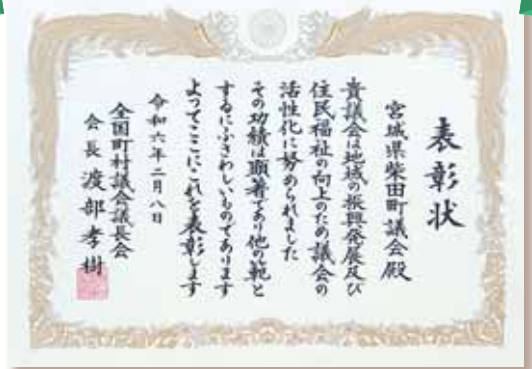 表彰状
宮城県柴田町議会殿
貴議会は地域の振興発展及び
住民福祉の向上のため議会の
活性化に努められました
その功績は顕著であり他の範と
するにふさわしいものであります
よってここにこれを表彰します
令和六年二月八日
全国町村議会議長会
会長 渡部孝樹